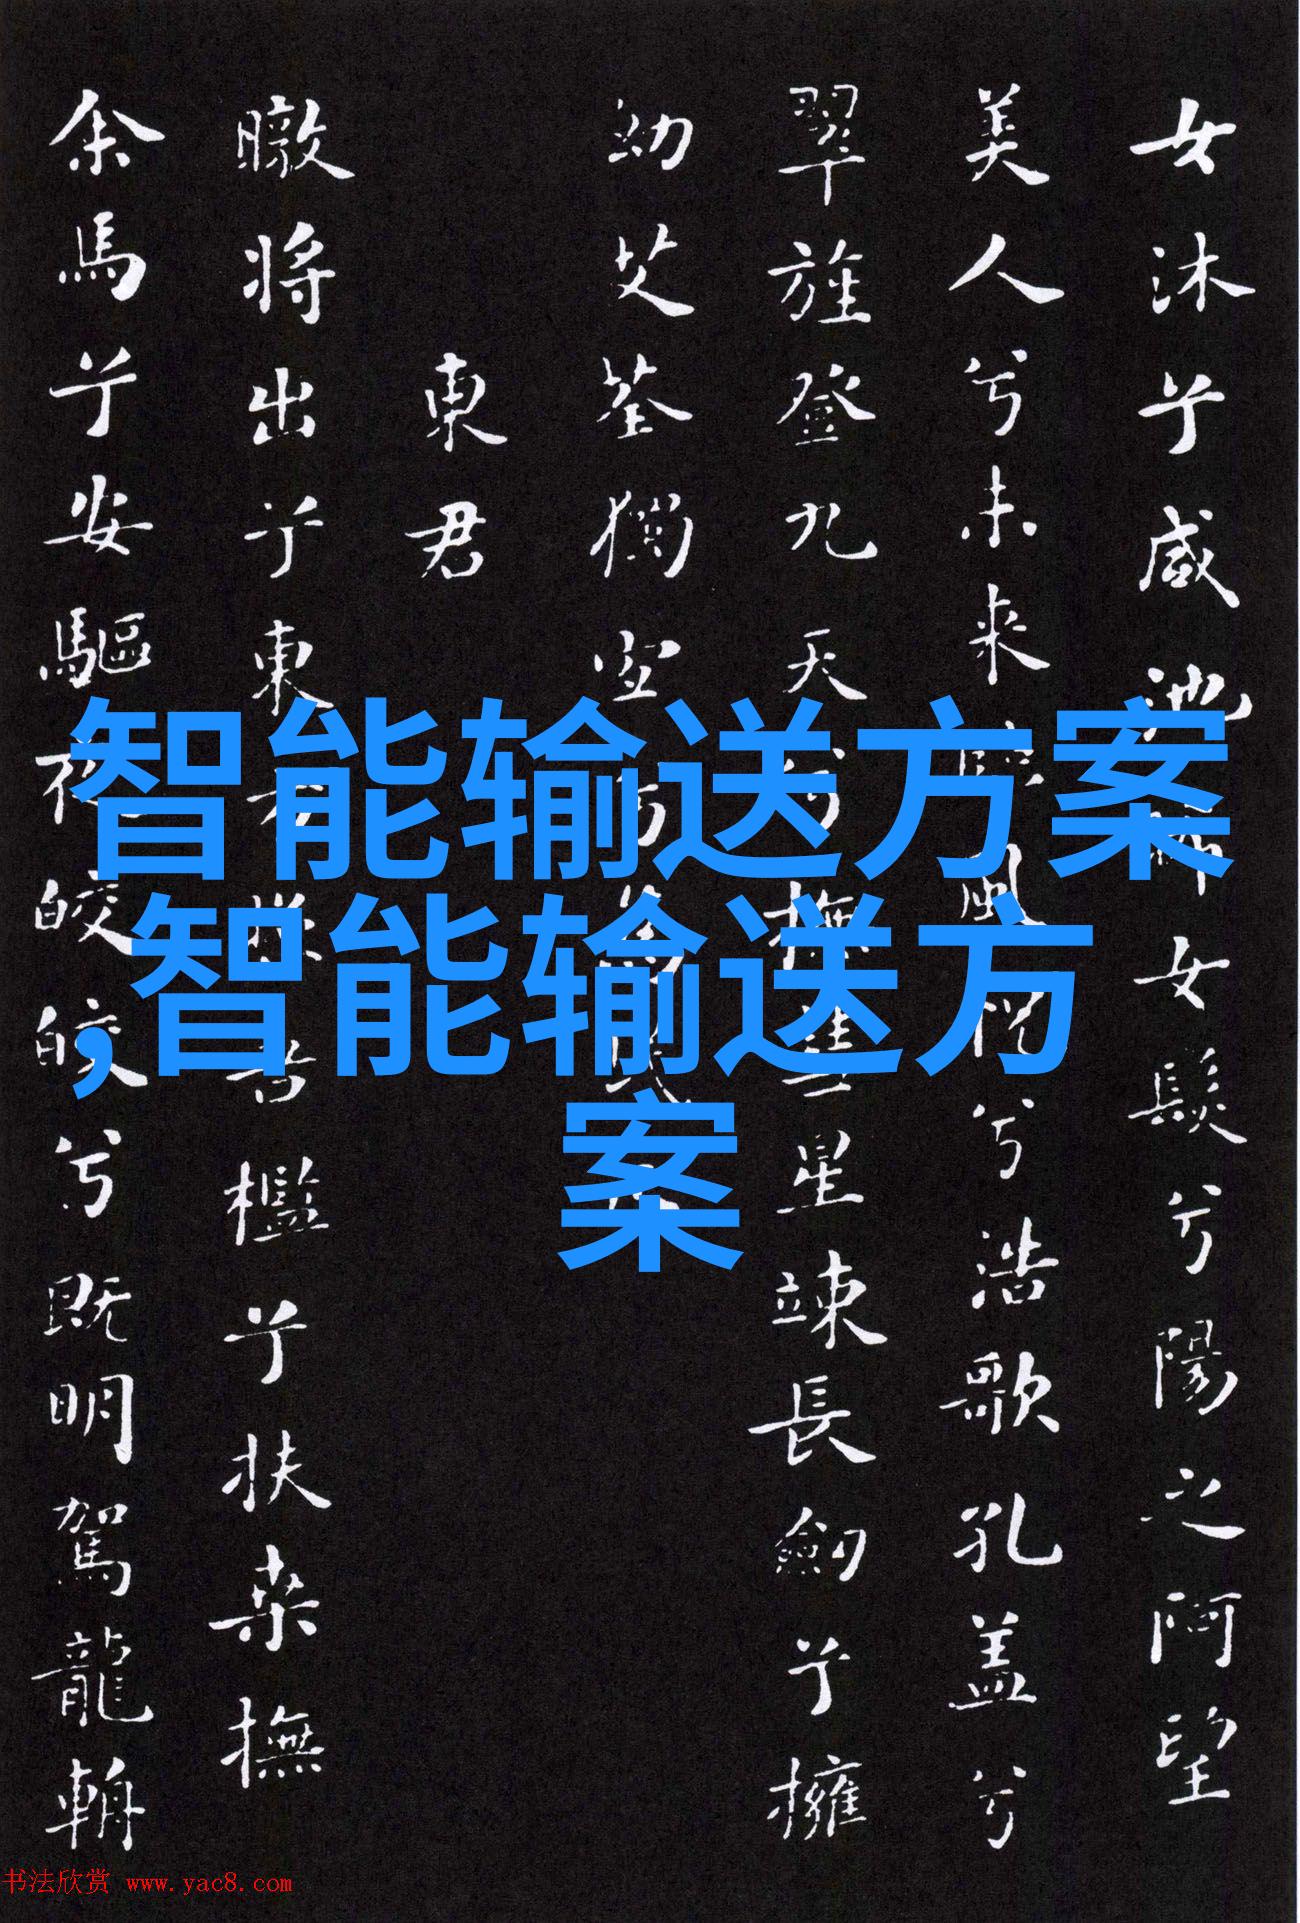 女沐兮咸池晞女髮兮陽之阿望
美人兮未来臨風怳兮浩歌孔盖兮
翠旌登九天兮撫彗星竦長劍兮擁
幼艾荃獨宜兮為民正
東君
暾将出兮東方照吾檻兮扶桑撫
余馬兮安驅夜皎皎兮既明駕龍輈
智能输送方案
,智能输送方
案
书法欣赏 www.yac8.com